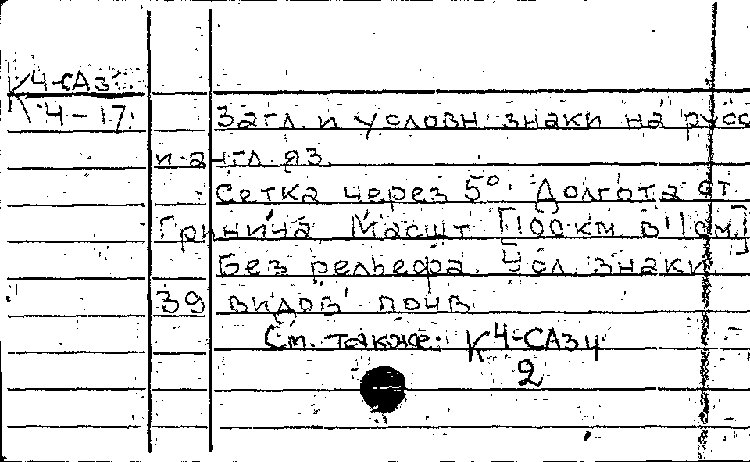 К4-САз
4-17
Загл. и условн. знаки на русс
и англ. яз.
Сетка через 5°. Долгота от
Гринича Масшт [100 км в 1 см.]
Без рельефа. Усл. знаки
39 видов почв
См. также: К 4-САз4
2